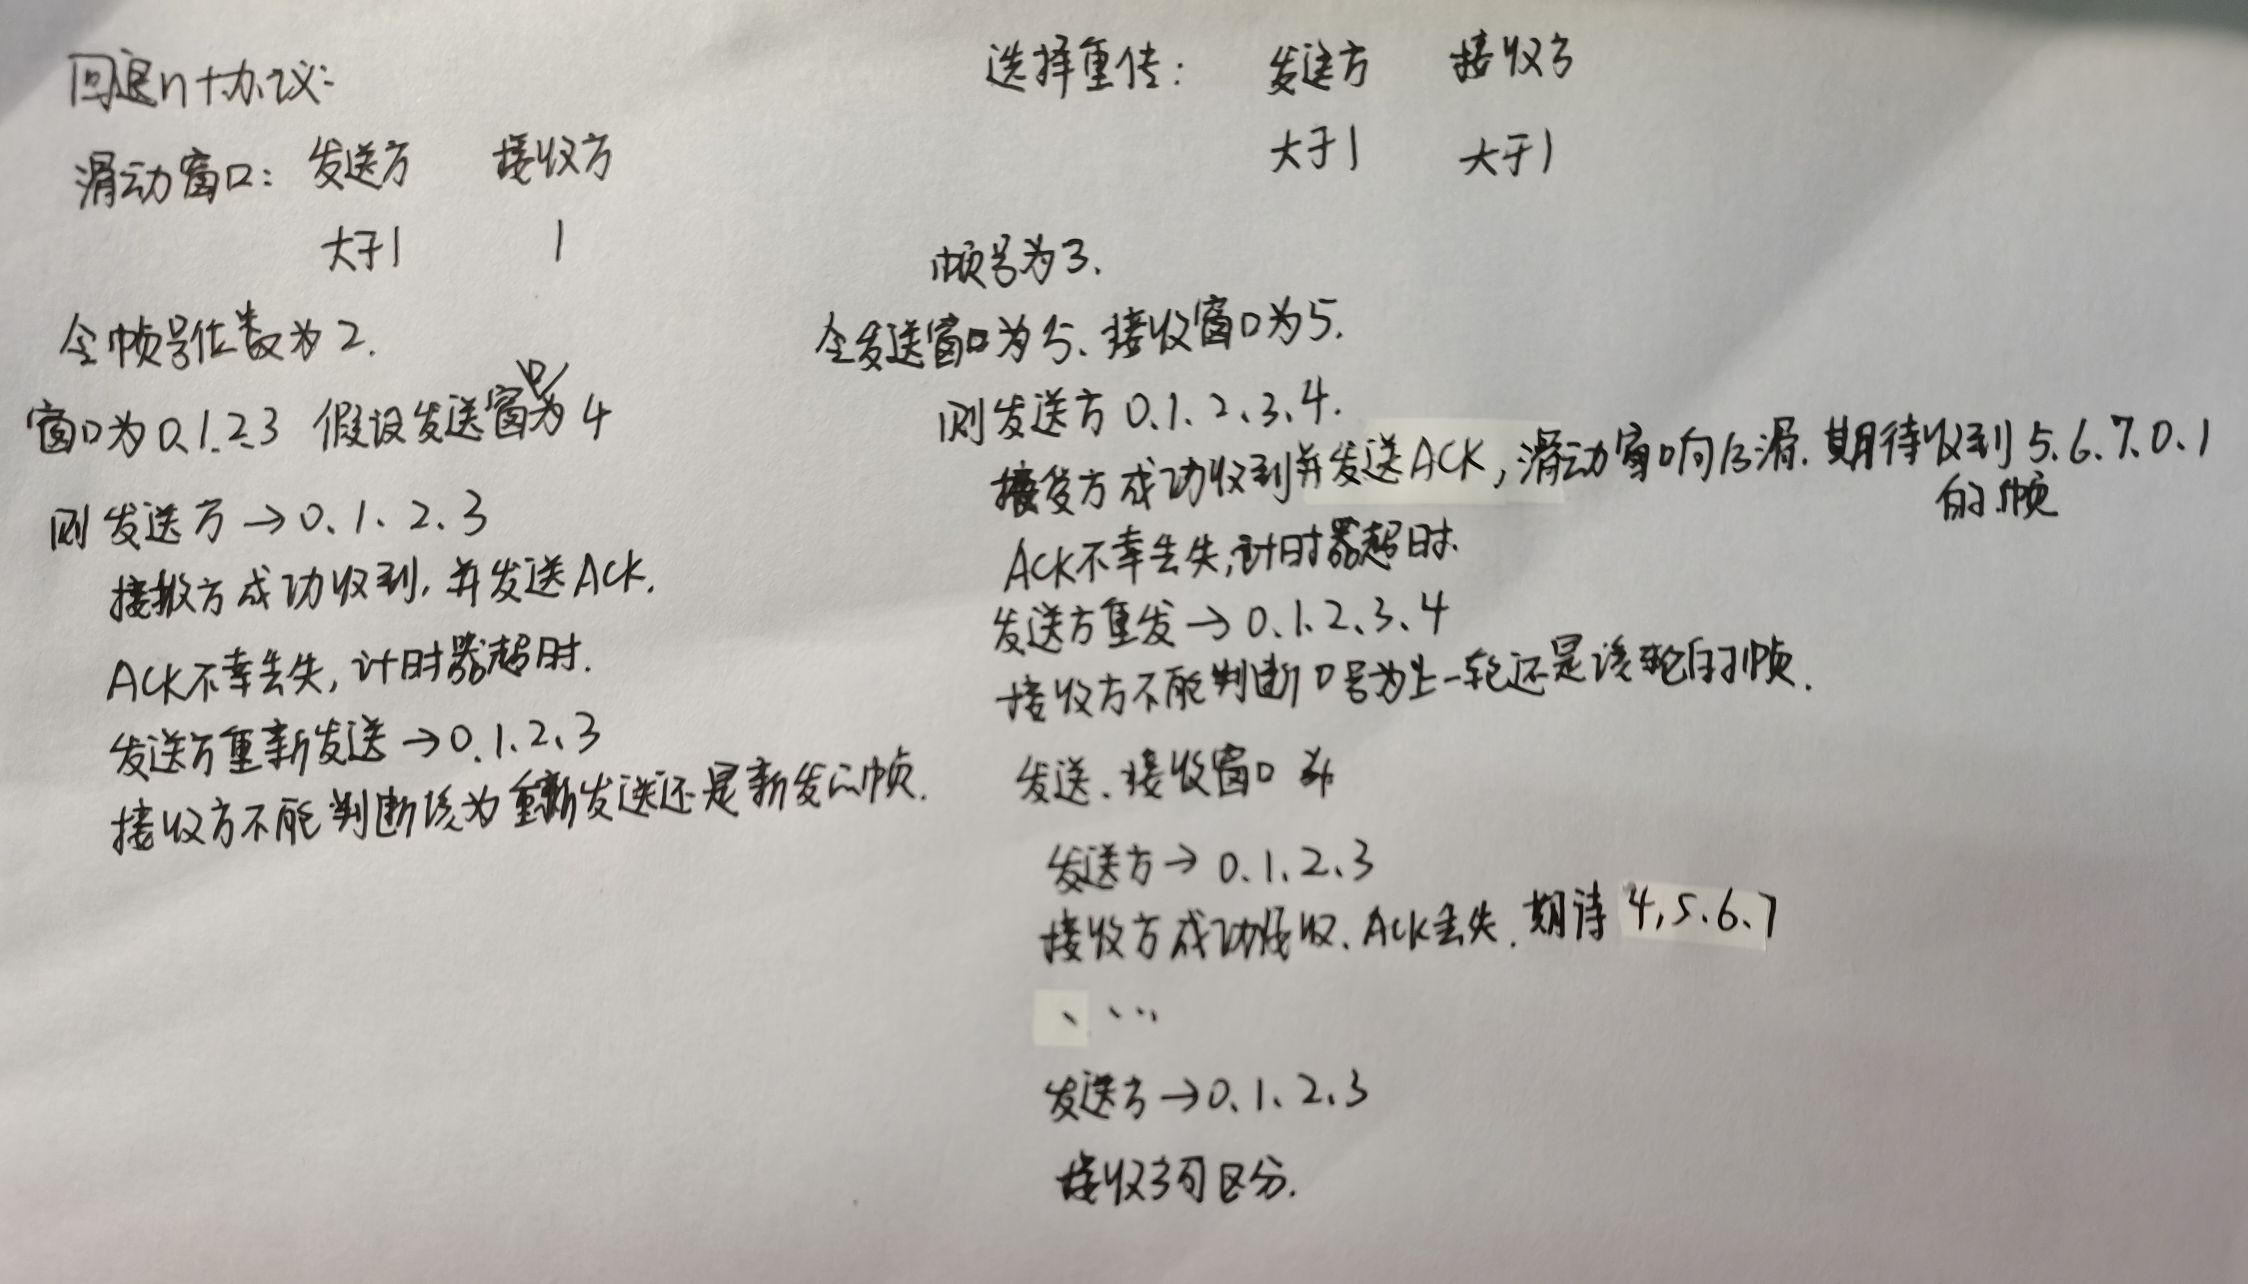 回退n协议:
滑动窗口: 发送方 接收方
大于1 1
令帧号位数为2.
窗口为0.1.2.3 假设发送窗口为4
则发送方→0.1.2.3
接收方成功收到,并发送ACK.
ACK不幸丢失,计时器超时.
发送方重新发送→0.1.2.3
接收方不能判断该为重新发送还是新发的帧.
选择重传: 发送方 接收方
大于1 大于1
帧号为3.
令发送窗口为5、接收窗口为5.
则发送方0.1.2.3.4.
接受方成功收到并发送ACK,滑动窗口向后滑.期待收到5.6.7.0.1
的帧
ACK不幸丢失,计时器超时.
发送方重发→0.1.2.3.4
接收方不能判断0号为上一轮还是该轮的帧.
发送、接收窗口为4
发送方→0.1.2.3
接收方成功接收、ACK丢失.期待4,5.6.7
、、...
发送方→0.1.2.3
接收方可区分.